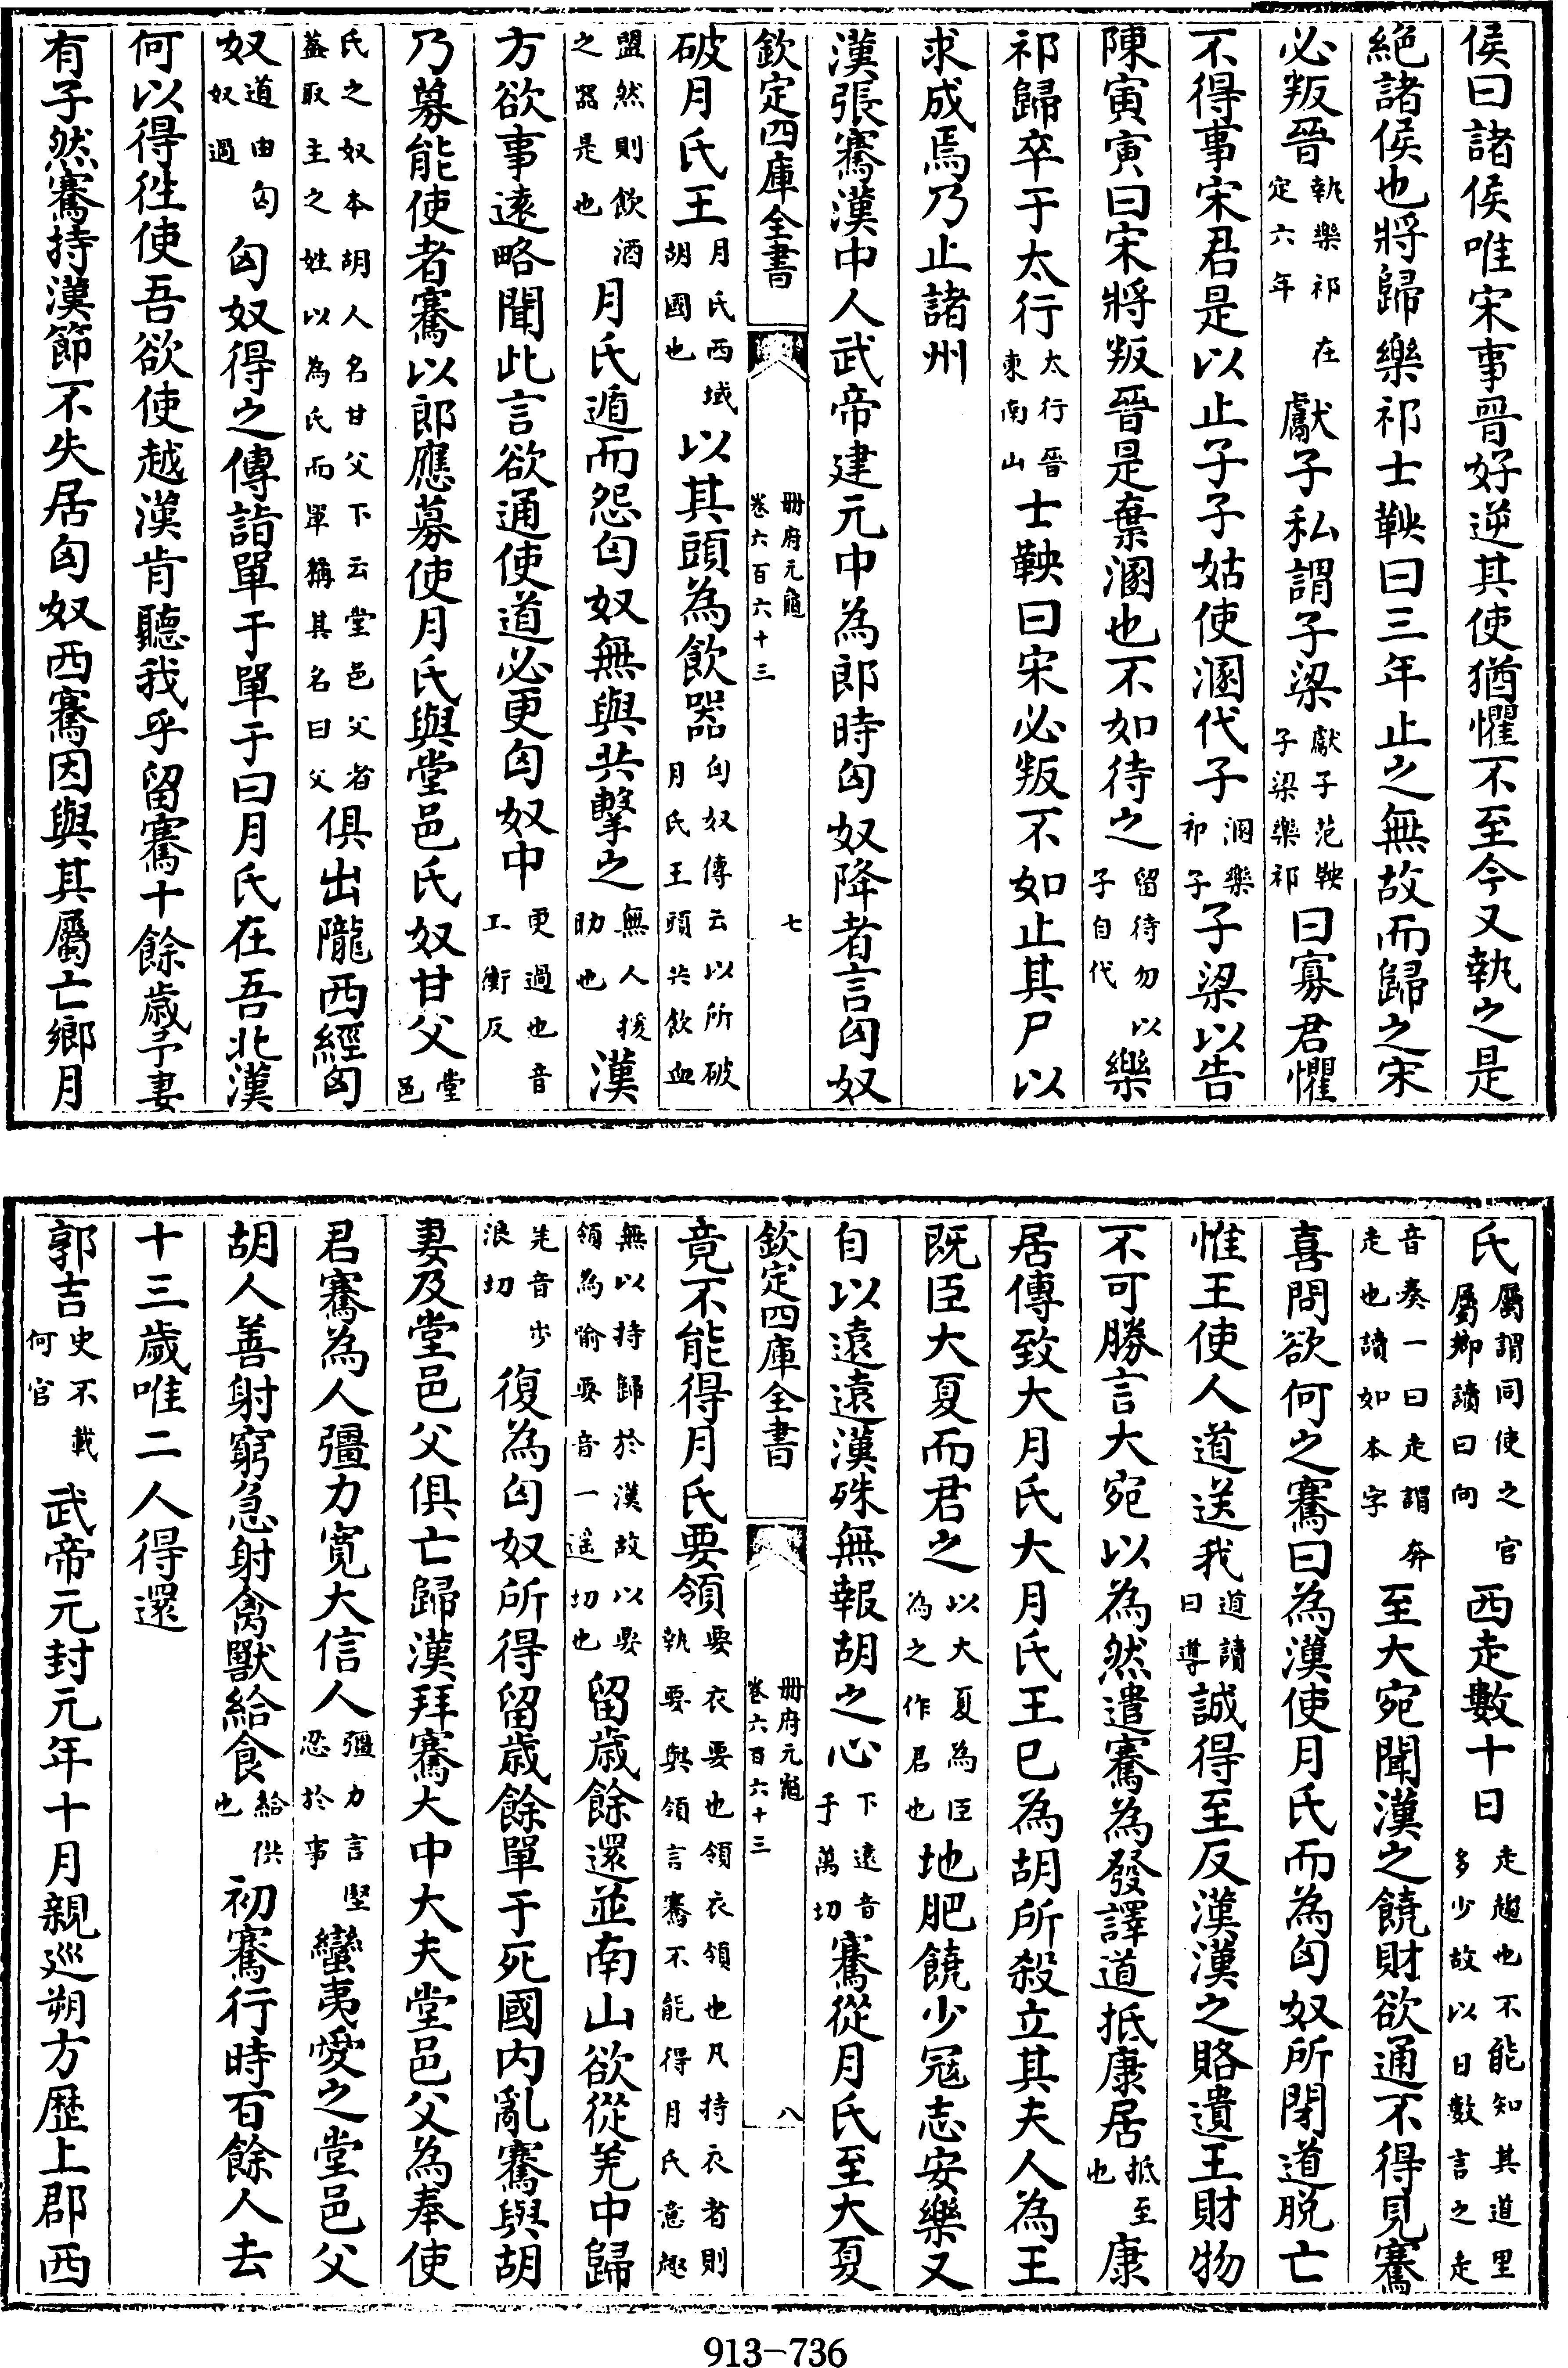 侯曰諸侯唯宋事晉好逆其使猶懼不至今又執之是
絕諸侯也將歸樂祁士鞅曰三年止之無故而歸之宋
必叛晉執樂祁在定六年獻子私謂子梁獻子范鞅子梁樂祁曰寡君懼
不得事宋君是以止子子姑使溷代子溷樂祁子子梁以告
陳寅寅曰宋將叛晉是棄溷也不如待之留待勿以子自代樂
祁歸卒于太行太行晉東南山士鞅曰宋必叛不如止其尸以
求成焉乃止諸州
漢張騫漢中人武帝建元中為郎時匈奴降者言匈奴
欽定四庫全書
冊府元龜
卷六百六十三
七
破月氏王月氏西域胡國也以其頭為飲器匈奴傳云以所破月氏王頭共飲血
盟然則飲酒之器是也月氏遁而怨匈奴無與共擊之無人援助也漢
方欲事遠略聞此言欲通使道必更匈奴中更過也音工衡反
乃募能使者騫以郎應募使月氏與堂邑氏奴甘父堂邑
氏之奴本胡人名甘父下云堂邑父者蓋取主之姓以為氏而單稱其名曰父俱出隴西經匈
奴道由匈奴過匈奴得之傳詣單于單于曰月氏在吾北漢
何以得徃使吾欲使越漢肯聽我乎留騫十餘歲予妻
有子然騫持漢節不失居匈奴西騫因與其屬亡鄉月
氏屬謂同使之官屬鄉讀曰向西走數十日走趨也不能知其道里多少故以日數言之走
音奏一曰走謂奔走也讀如本字至大宛聞漢之饒財欲通不得見騫
喜問欲何之騫曰為漢使月氏而為匈奴所閉道脱亡
惟王使人道送我道讀曰導誠得至反漢漢之賂遺王財物
不可勝言大宛以為然遣騫為發譯道抵康居抵至也康
居傳致大月氏大月氏王已為胡所殺立其夫人為王
既臣大夏而君之以大夏為臣為之作君也地肥饒少冦志安樂又
自以遠遠漢殊無報胡之心下遠音于萬切騫從月氏至大夏
欽定四庫全書
冊府元龜
卷六百六十三
八
竟不能得月氏要領要衣要也領衣領也凡持衣者則執要與領言騫不能得月氏意趣
無以持歸於漢故以要領為喻要音一遥切也留歲餘還並南山欲從羌中歸
羌音步浪切復為匈奴所得留歲餘單于死國内亂騫與胡
妻及堂邑父俱亡歸漢拜騫大中大夫堂邑父為奉使
君騫為人彊力寛大信人彊力言堅忍於事蠻夷愛之堂邑父
胡人善射窮急射禽獸給食給供也初騫行時百餘人去
十三歲唯二人得還
郭吉史不載何官武帝元封元年十月親巡朔方歴上郡西
913-736